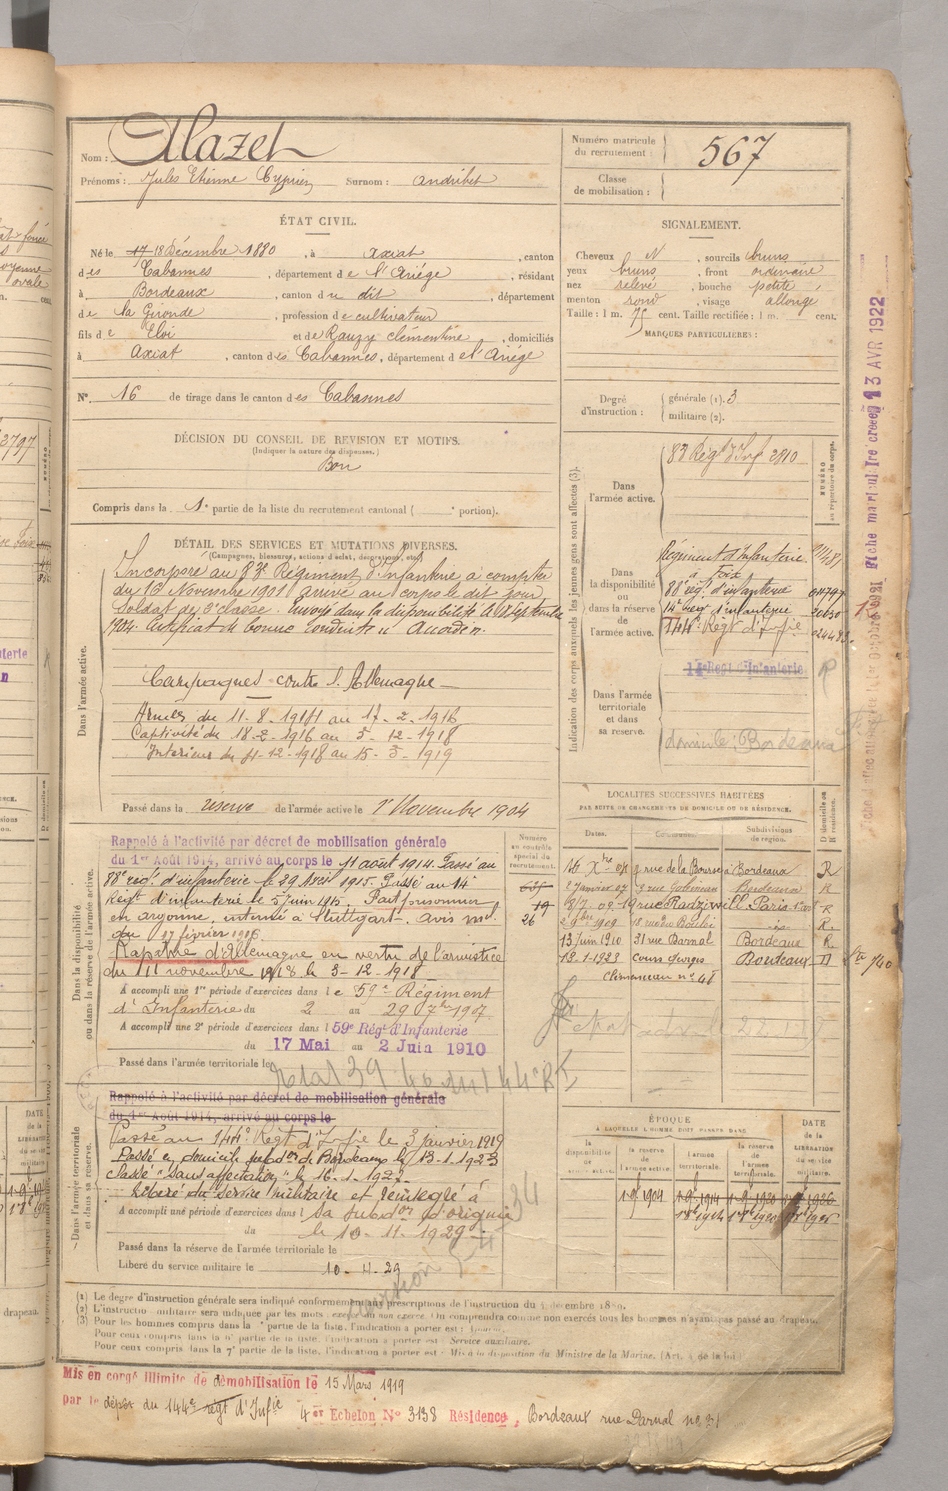 Nom : Alazet
Prénoms : Jules Etienne Cyprien Surnom : andribet
Numéro matricule du recrutement : 567
Classe de mobilisation :
ÉTAT CIVIL.
Né le 17 18 Décembre 1880, à Axiat, canton
des Cabannes, département de l'Ariége, résidant
à Bordeaux, canton du dit, département
de la Gironde, profession de cultivateur
fils de Eloi et de Rauzy clémentine, domiciliés
à Axiat, canton des Cabannes, département de l'Ariége
N° 16 de tirage dans le canton des Cabannes
SIGNALEMENT.
Cheveux N, sourcils bruns
yeux bruns, front ordinaire
nez relevé, bouche petite
menton rond, visage allongé
Taille : 1 m. 75 cent. Taille rectifiée : 1 m. cent.
MARQUES PARTICULIÈRES :
Degré d'instruction : générale (1). 3
militaire (2).
DÉCISION DU CONSEIL DE REVISION ET MOTIFS.
(Indiquer la nature des dispenses.)
Bon
Compris dans la 1e partie de la liste du recrutement cantonal ( portion).
DÉTAIL DES SERVICES ET MUTATIONS DIVERSES.
(Campagnes, blessures, actions d'éclat, décorations, etc.)
Dans l'armée active.
Incorporé au 83e Régiment d'Infanterie à compter
du 16 Novembre 1901 arrivé au corps le dit jour
Soldat de 2e classe. Envoyé dans la disponibilité le Septembre
1904. Certificat de bonne conduite accordé.
Campagnes contre l'Allemagne
Armées du 11-8-1914 au 17-2-1916
Captivité du 18-2-1916 au 3-12-1918
Interieur du 4-12-1918 au 15-3-1919
Passé dans la réserve de l'armée active le 1er Novembre 1904
Indication des corps auxquels les jeunes gens sont affectés (3).
NUMÉRO au répertoire du corps.
Dans l'armée active.
83 Régt d'Inf 2810
Dans la disponibilité ou dans la réserve de l'armée active.
Régiment d'Infanterie
à Foix
88e régt d'infanterie
14e Régt d'infanterie
144e Régt d'Infie
Dans l'armée territoriale et dans sa réserve.
14e Régt d'Infanterie R
domicile Bordeaux
Fiche matriculaire créée 13 AVR 1922
Dans la disponibilité ou dans la réserve de l'armée active.
Rappelé à l'activité par décret de mobilisation générale
du 1er Août 1914, arrivé au corps le 11 août 1914. Passé au
88e régt d'infanterie le 29 Avril 1915. Passé au 14e
Régt d'infanterie le 5 juin 1915. Fait prisonnier
en argonne, interné à Stuttgart. avis
du 17 février 1916
Rapatrié d'Allemagne en vertu de l'armistice
du 11 novembre 1918 le 3-12-1918
A accompli une 1re période d'exercices dans le 59e Régiment
d'Infanterie du 2 au 29 7bre 1907
A accompli une 2e période d'exercices dans l 59e Régt d'Infanterie
du 17 Mai au 2 Juin 1910
Passé dans l'armée territoriale le
Numéro au contrôle spécial du recrutement.
19
26
LOCALITÉS SUCCESSIVES HABITÉES
PAR SUITE DE CHANGEMENTS DE DOMICILE OU DE RÉSIDENCE.
Dates. Communes. Subdivisions de région. D domicile ou R résidence.
rue de la Bourse à Bordeaux R
2 janvier 07 Bordeaux R
8/7 09 19 rue Radziwill Paris R
1909 R.
13 Juin 1910 31 rue Darnal Bordeaux R
13-1-1923 cours Georges Bordeaux D
Clémenceau n° 48
Dans l'armée territoriale et dans sa réserve.
Rappelé à l'activité par décret de mobilisation générale
du 1er Août 1914, arrivé au corps le
Passé au 144e Régt d'Infie le 3 janvier 1919
Passé en domicile subdon de Bordeaux le 13-1-1923
classé "sans affectation" le 16-1-1927
Libéré du service militaire et réintégré à
A accompli une période d'exercices dans l sa subdon d'origine
du le 10-11-1929
Passé dans la réserve de l'armée territoriale le
Libéré du service militaire le 10-11-29
ÉPOQUE
À LAQUELLE L'HOMME DOIT PASSER DANS
la disponibilité la réserve de l'armée active. l'armée territoriale. la réserve de l'armée territoriale. DATE de la LIBÉRATION du service militaire.
1-9bre 1904 1-9bre 1914 1-9bre 1920 1-9bre 1926
1er 8bre 1914 1er 8bre 1920 1er 8bre 1926
(1) Le degré d'instruction générale sera indiqué conformément aux prescriptions de l'instruction du 4 décembre 1889.
(2) L'instruction militaire sera indiquée par les mots : exercé ou non exercé. On comprendra comme non exercés tous les hommes n'ayant pas passé au drapeau.
(3) Pour les hommes compris dans la partie de la liste, l'indication à porter est :
Pour ceux compris dans la 6e partie de la liste, l'indication à porter est : Service auxiliaire.
Pour ceux compris dans la 7e partie de la liste, l'indication à porter est : Mis à la disposition du Ministre de la Marine. (Art. 4 de la loi)
Mis en congé illimité de démobilisation le 15 Mars 1919
par le dépôt du 144e régt d'Infie 4er Echelon N° 3138 Résidence, Bordeaux rue Darnal no 31